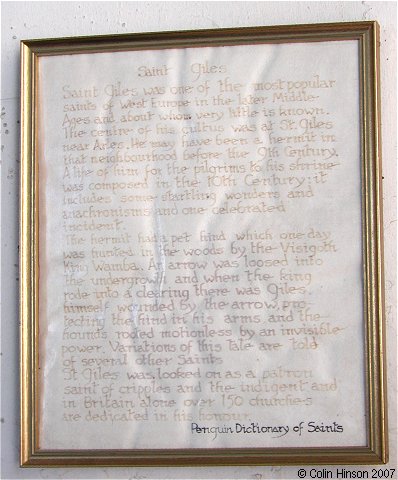 Saint Giles
Saint Giles was one of the most popular
saints of West Europe in the later Middle
Ages and about whom very little is known.
The centre of his cultus was at St. Giles
near Arles. He may have been a hermit in
that neighbourhood before the 9th Century.
A life of him for the pilgrims to his shrine
was composed in the 10th Century; it
includes some startling wonders and
anachronisms and one celebrated
incident.
The hermit had a pet hind which one day
was hunted in the woods by the Visigoth
King Wamba. An arrow was loosed into
the undergrowth and when the king
rode into a clearing there was Giles,
himself wounded by the arrow, pro-
tecting the hind in his arms and the
hounds rooted motionless by an invisible
power. Variations of this tale are told
of several other Saints
St Giles was looked on as a patron
saint of cripples and the indigent and
in Britain alone over 150 churches
are dedicated in his honour.
Penguin Dictionary of Saints
© Colin Hinson 2007